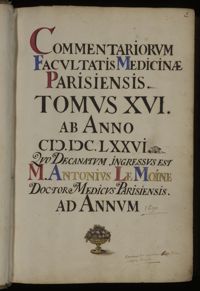 COMMENTARIORVM
FACVLTATIS MEDICINÆ
PARISIENSIS.
TOMVS XVI.
AB ANNO
CIƆ.IƆC.LXXVI
QVO DECANATVM INGRESSVS EST
M. ANTONIVS LE MOINE
DOCTOR MEDICVS PARISIENSIS.
AD ANNVM